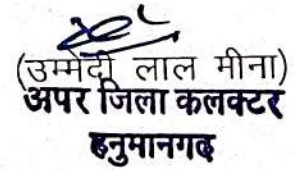 (उम्मेदी लाल मीना)
अपर जिला कलक्टर
हनुमानगढ